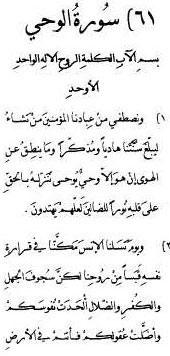 ٦١) سُورَةُ الوَحي
بسم الآب الكلمة الروح الاله الواحد
الأوحد
١) ونصطفي من عبادنا المؤمنين من نشاء
ليبلغ سنتنا هادياً ومذكراً وما ينطق عن
الهوى إن هو إلا وحيٌ يوحى ننزله بالحق
على قلبه نوراً للضالين لعلهم يهتدون.
٢) ويوم نسلنا الإنس مكنا في قرارة
نفسه قبساً من روحنا لكن سجوف الجهل
والكفر والضلال ألحدت نفوسكم
وأضلت عقولكم فأنتم في الأرض